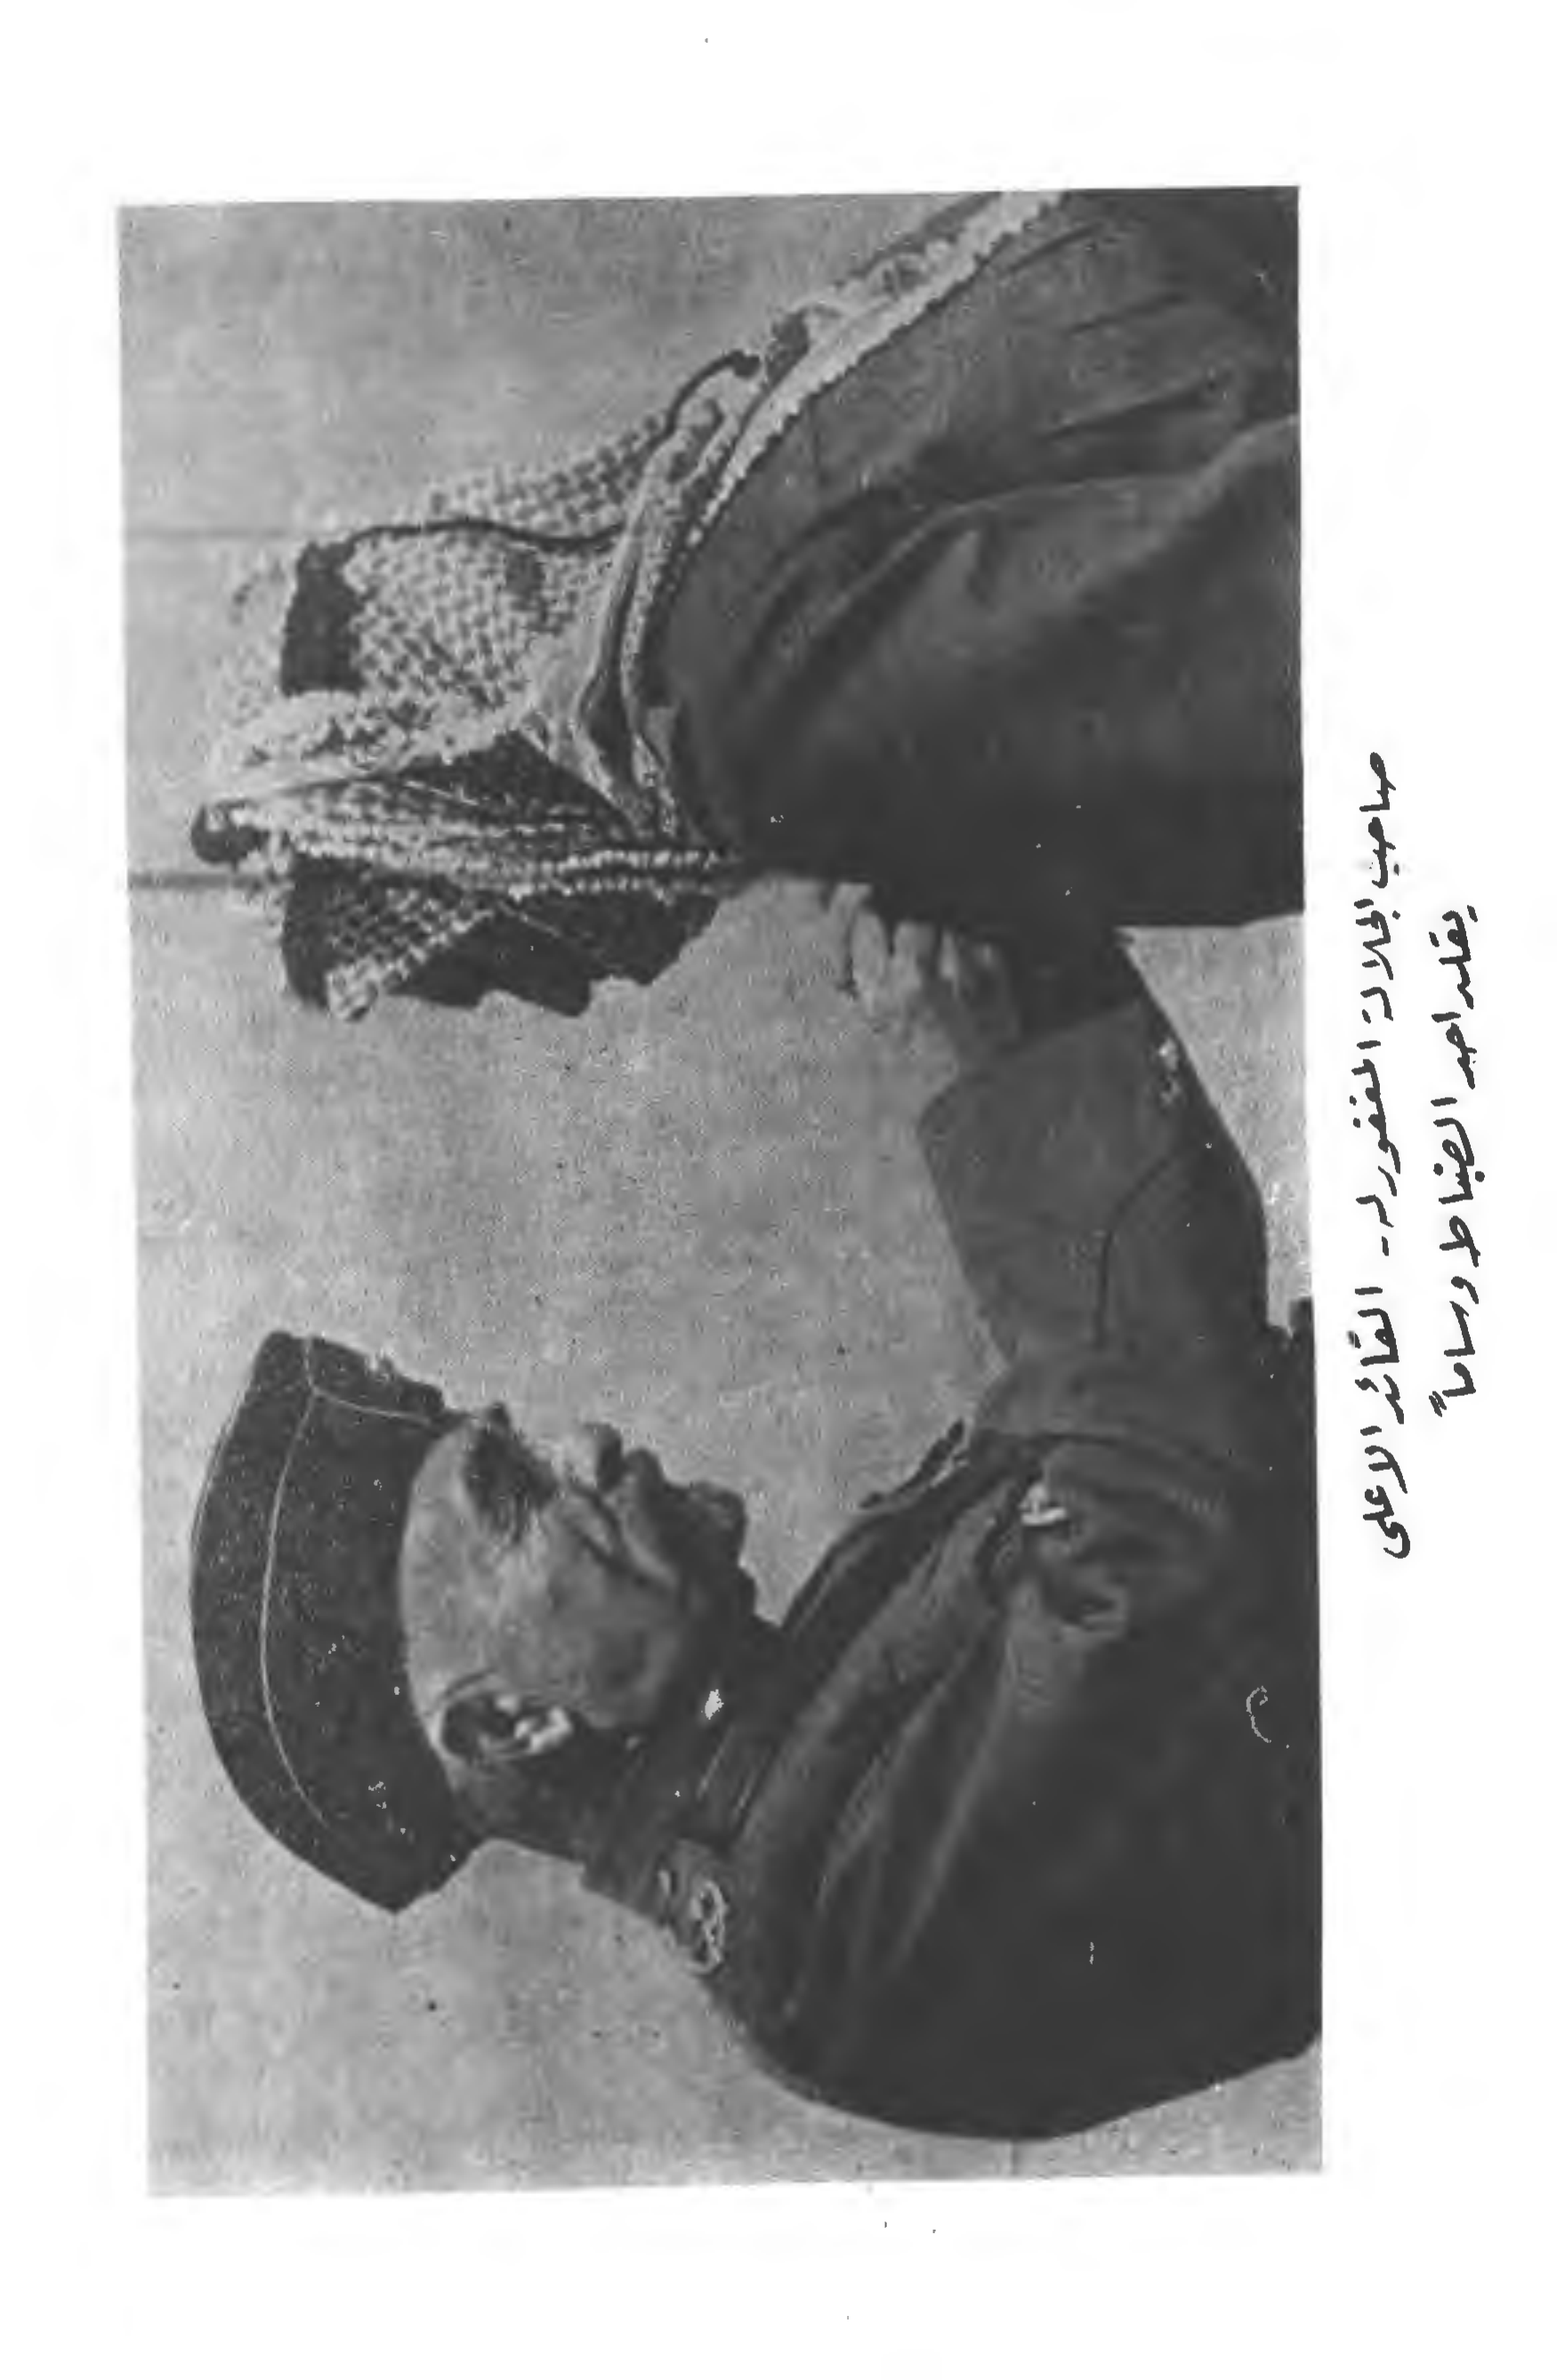 صاحب الجلالة المغفور له - القائد الاعلى
يقلد احد الضباط وساماً